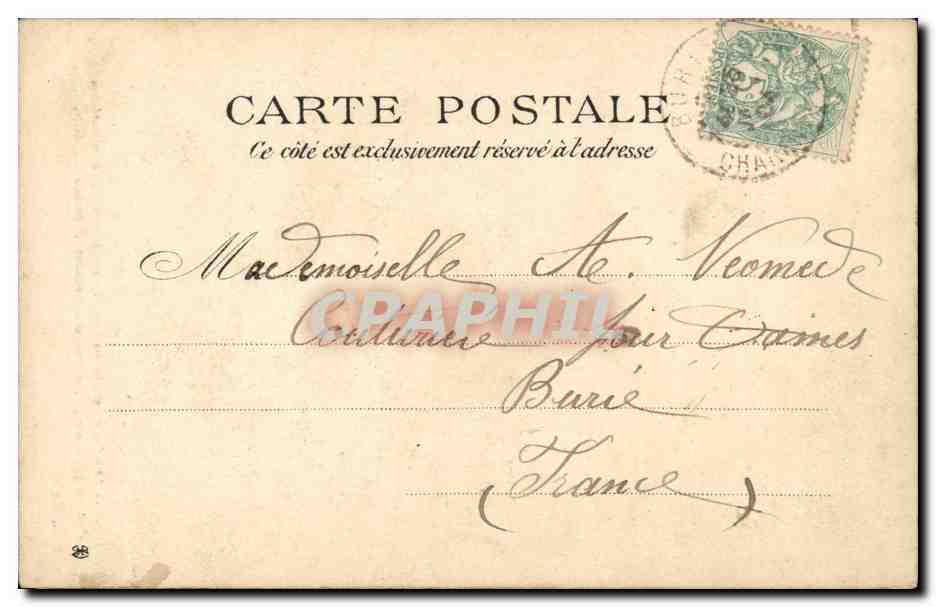 CARTE POSTALE
Ce côté est exclusivement réservé à l'adresse
BURI
CHAR
Mademoiselle A. Neomede
Couturière pour Dames
Burie
(France)
CPAPHIL